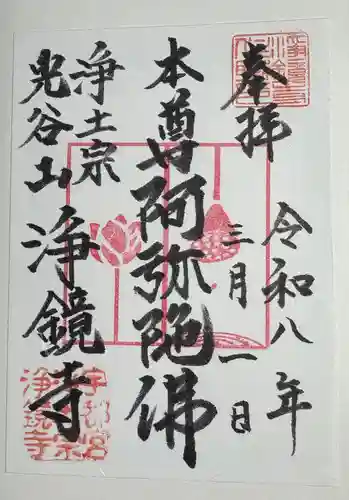 奉拝
令和八年
三月一日
本尊阿弥陀佛
浄土宗
光谷山
浄鏡寺
宇都宮
浄鏡寺